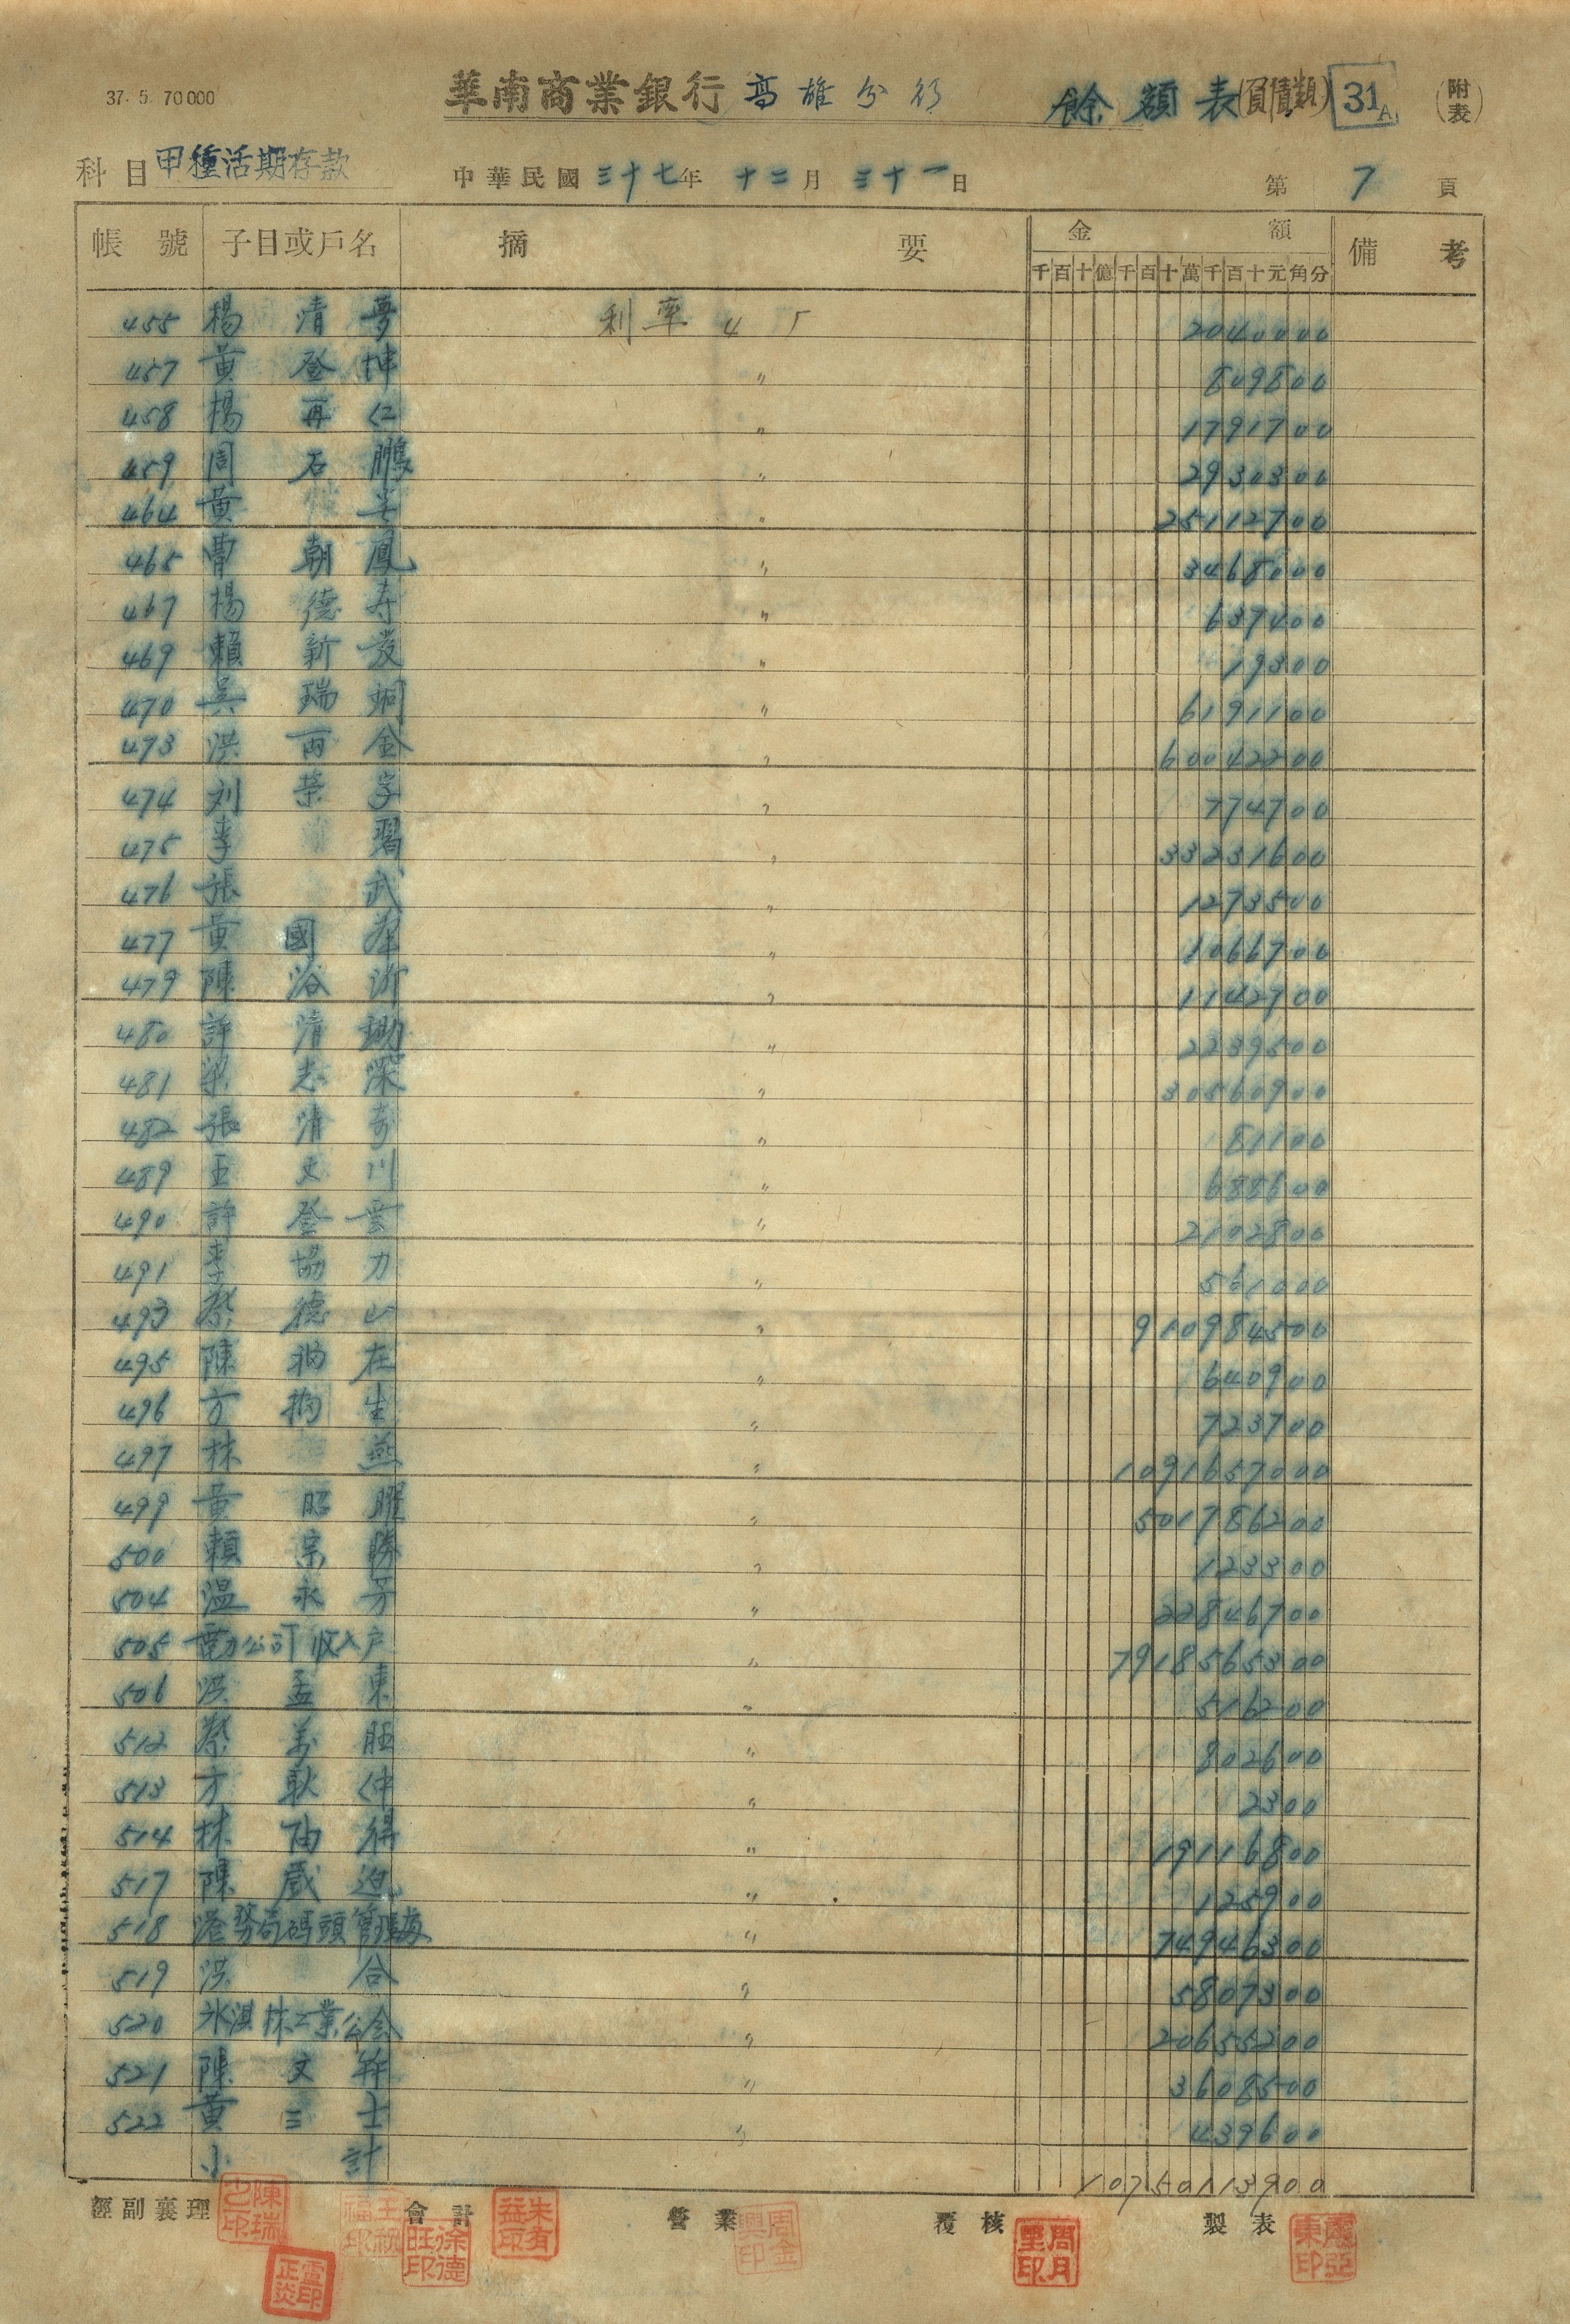 37. 5. 70000
華南商業銀行 高雄分行 餘額表(負債類) 31A (附表)
科目 甲種活期存款 中華民國三十七年十二月三十一日 第7頁
帳號 子目或戶名 摘要 金額 備考
千百十億千百十萬千百十元角分
455 楊清夢 利率 4 5 2040000
457 黃登坤 〃 809800
458 楊再仁 〃 1791700
459 周石鵬 〃 2930300
464 黃 〃 25112700
465 曹朝鳳 〃 3468000
467 楊德寿 〃 637400
469 賴新發 〃 19300
470 吳瑞 〃 6191100
473 洪両全 〃 60042200
474 刘荣字 〃 774700
475 李 〃 33231600
476 張武 〃 1273500
477 黃國 〃 1066700
479 陳浴沂 〃 1142700
480 許清鋤 〃 2239500
481 梁志深 〃 30560900
482 張清奇 〃 81100
489 王文川 〃 688600
490 許登雲 〃 2102800
491 李協力 〃 561000
493 蔡德山 〃 910984500
495 陳在 〃 640900
496 方生 〃 723700
497 林燕 〃 1091657000
499 黃昭耀 〃 501786200
500 賴宗勝 〃 123300
504 溫永芳 〃 22846700
505 電力公司收入户 〃 7918565300
506 洪孟東 〃 516200
512 蔡萬旺 〃 802600
513 方耿仲 〃 2300
514 林 〃 19116800
517 陳 〃 125900
518 港務局碼頭管理處 〃 74946300
519 洪合 〃 5807300
520 冰淇林工業公会 〃 20655200
521 陳文 〃 3608500
522 黃三士 〃 439600
小計 10750113900
經副襄理 會計 營業 覆核 製表
陳瑞 王 福印 徐德旺印 朱有益印 周金興印 周月里印 東印